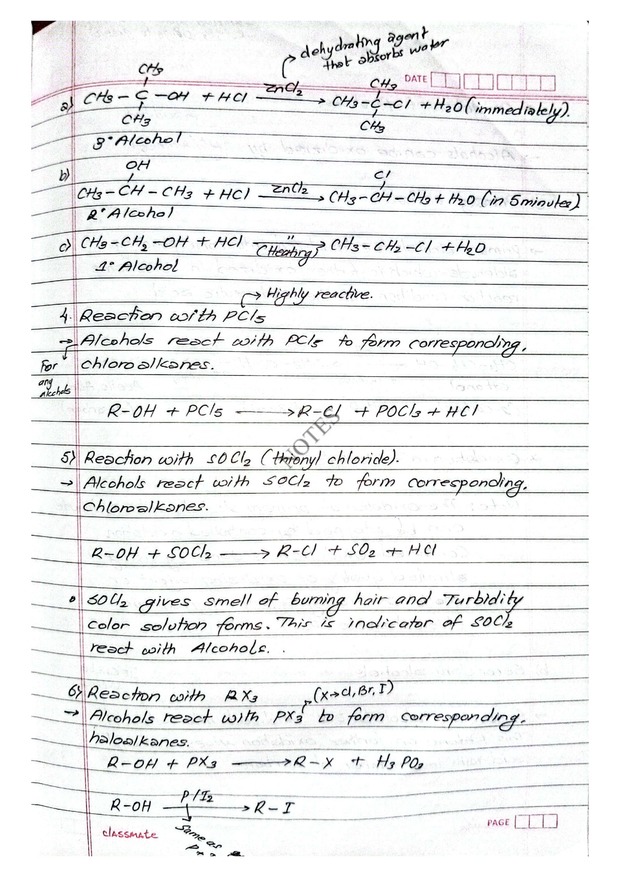 dehydrating agent
that absorbs water
DATE
CH3
a) CH3 – C – OH + HCl ZnCl2 → CH3 – C – Cl + H2O (immediately).
CH3
CH3
CH3
3° Alcohol
b) OH
Cl
CH3 – CH – CH3 + HCl ZnCl2 → CH3 – CH – CH3 + H2O (in 5 minutes)
2° Alcohol
c) CH3 – CH2 – OH + HCl " (Heating) → CH3 – CH2 – Cl + H2O
1° Alcohol
→ Highly reactive.
4. Reaction with PCl5
→ Alcohols react with PCl5 to form corresponding.
For any Alcohols
chloroalkanes.
R-OH + PCl5 → R-Cl + POCl3 + HCl
NOTES
5) Reaction with SOCl2 (thionyl chloride).
→ Alcohols react with SOCl2 to form corresponding.
chloroalkanes.
R-OH + SOCl2 → R-Cl + SO2 + HCl
• SOCl2 gives smell of burning hair and Turbidity
color solution forms. This is indicator of SOCl2
react with Alcohols.
6) Reaction with RX3 (X→Cl, Br, I)
→ Alcohols react with PX3 to form corresponding.
haloalkanes.
R-OH + PX3 → R-X + H3PO3
R-OH P/I2 → R-I
Same as
classmate
PAGE